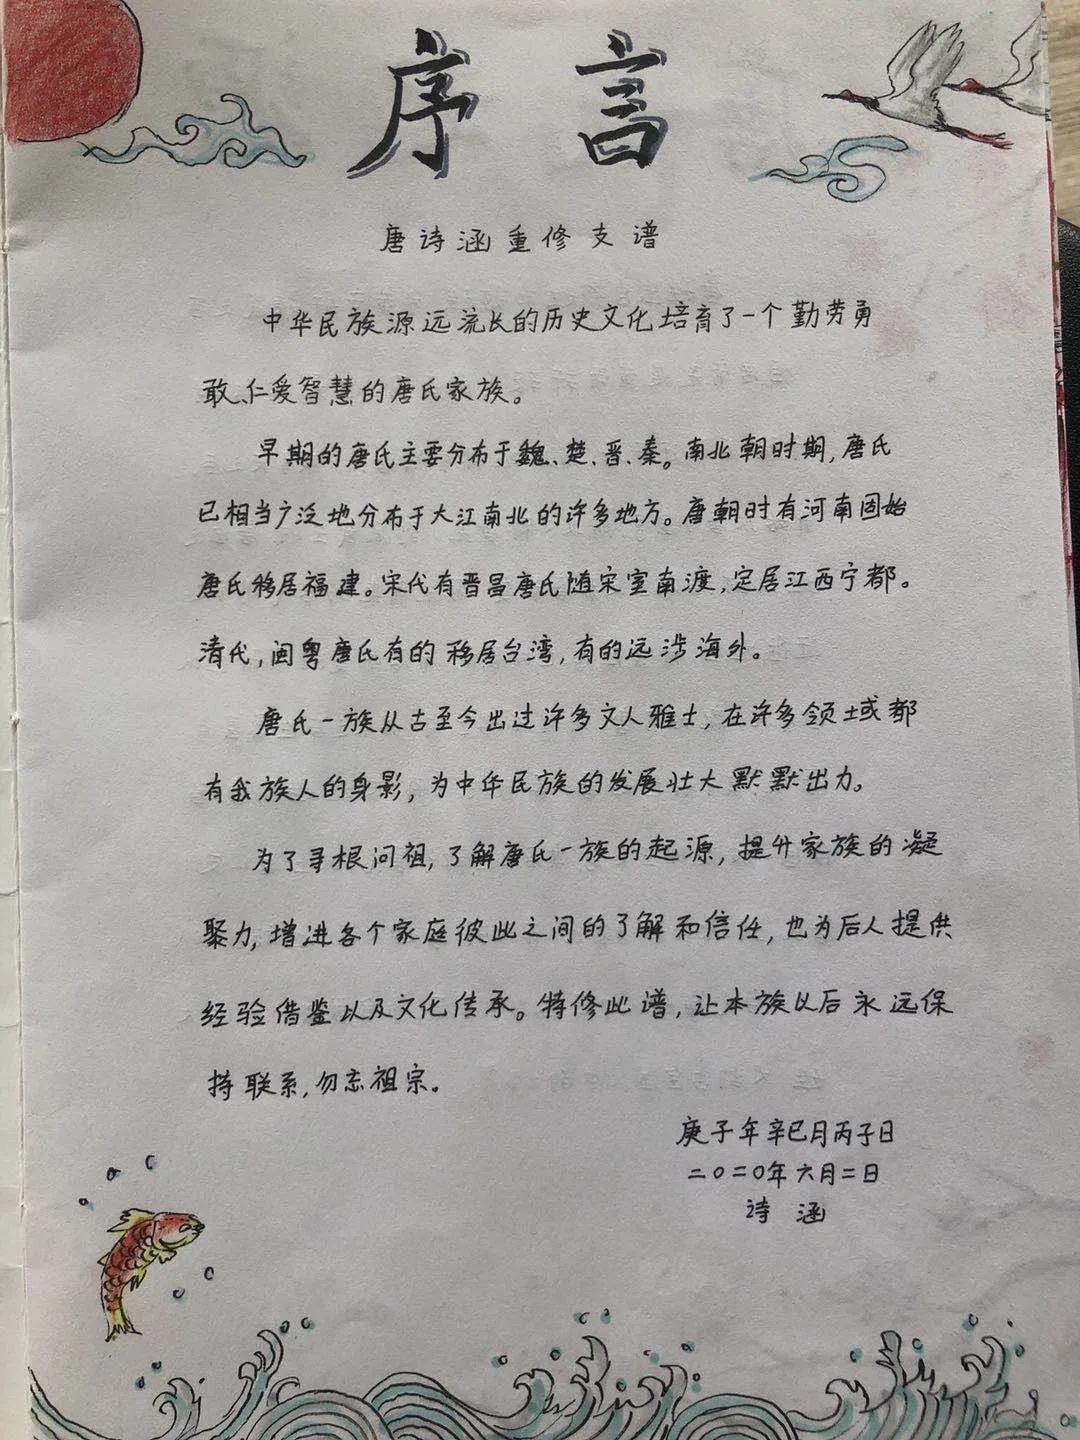 序言
唐诗涵重修支谱
中华民族源远流长的历史文化培育了一个勤劳勇
敢、仁爱智慧的唐氏家族。
早期的唐氏主要分布于魏、楚、晋、秦。南北朝时期,唐氏
已相当广泛地分布于大江南北的许多地方。唐朝时有河南固始
唐氏移居福建。宋代有晋昌唐氏随宋室南渡,定居江西宁都。
清代,闽粤唐氏有的移居台湾,有的远涉海外。
唐氏一族从古至今出过许多文人雅士,在许多领土或都
有我族人的身影,为中华民族的发展壮大默默出力。
为了寻根问祖,了解唐氏一族的起源,提升家族的凝
聚力,增进各个家庭彼此之间的了解和信任,也为后人提供
经验借鉴以及文化传承。特修此谱,让本族以后永远保
持联系,勿忘祖宗。
庚子年辛巳月丙子日
二〇二〇年六月二日
诗涵